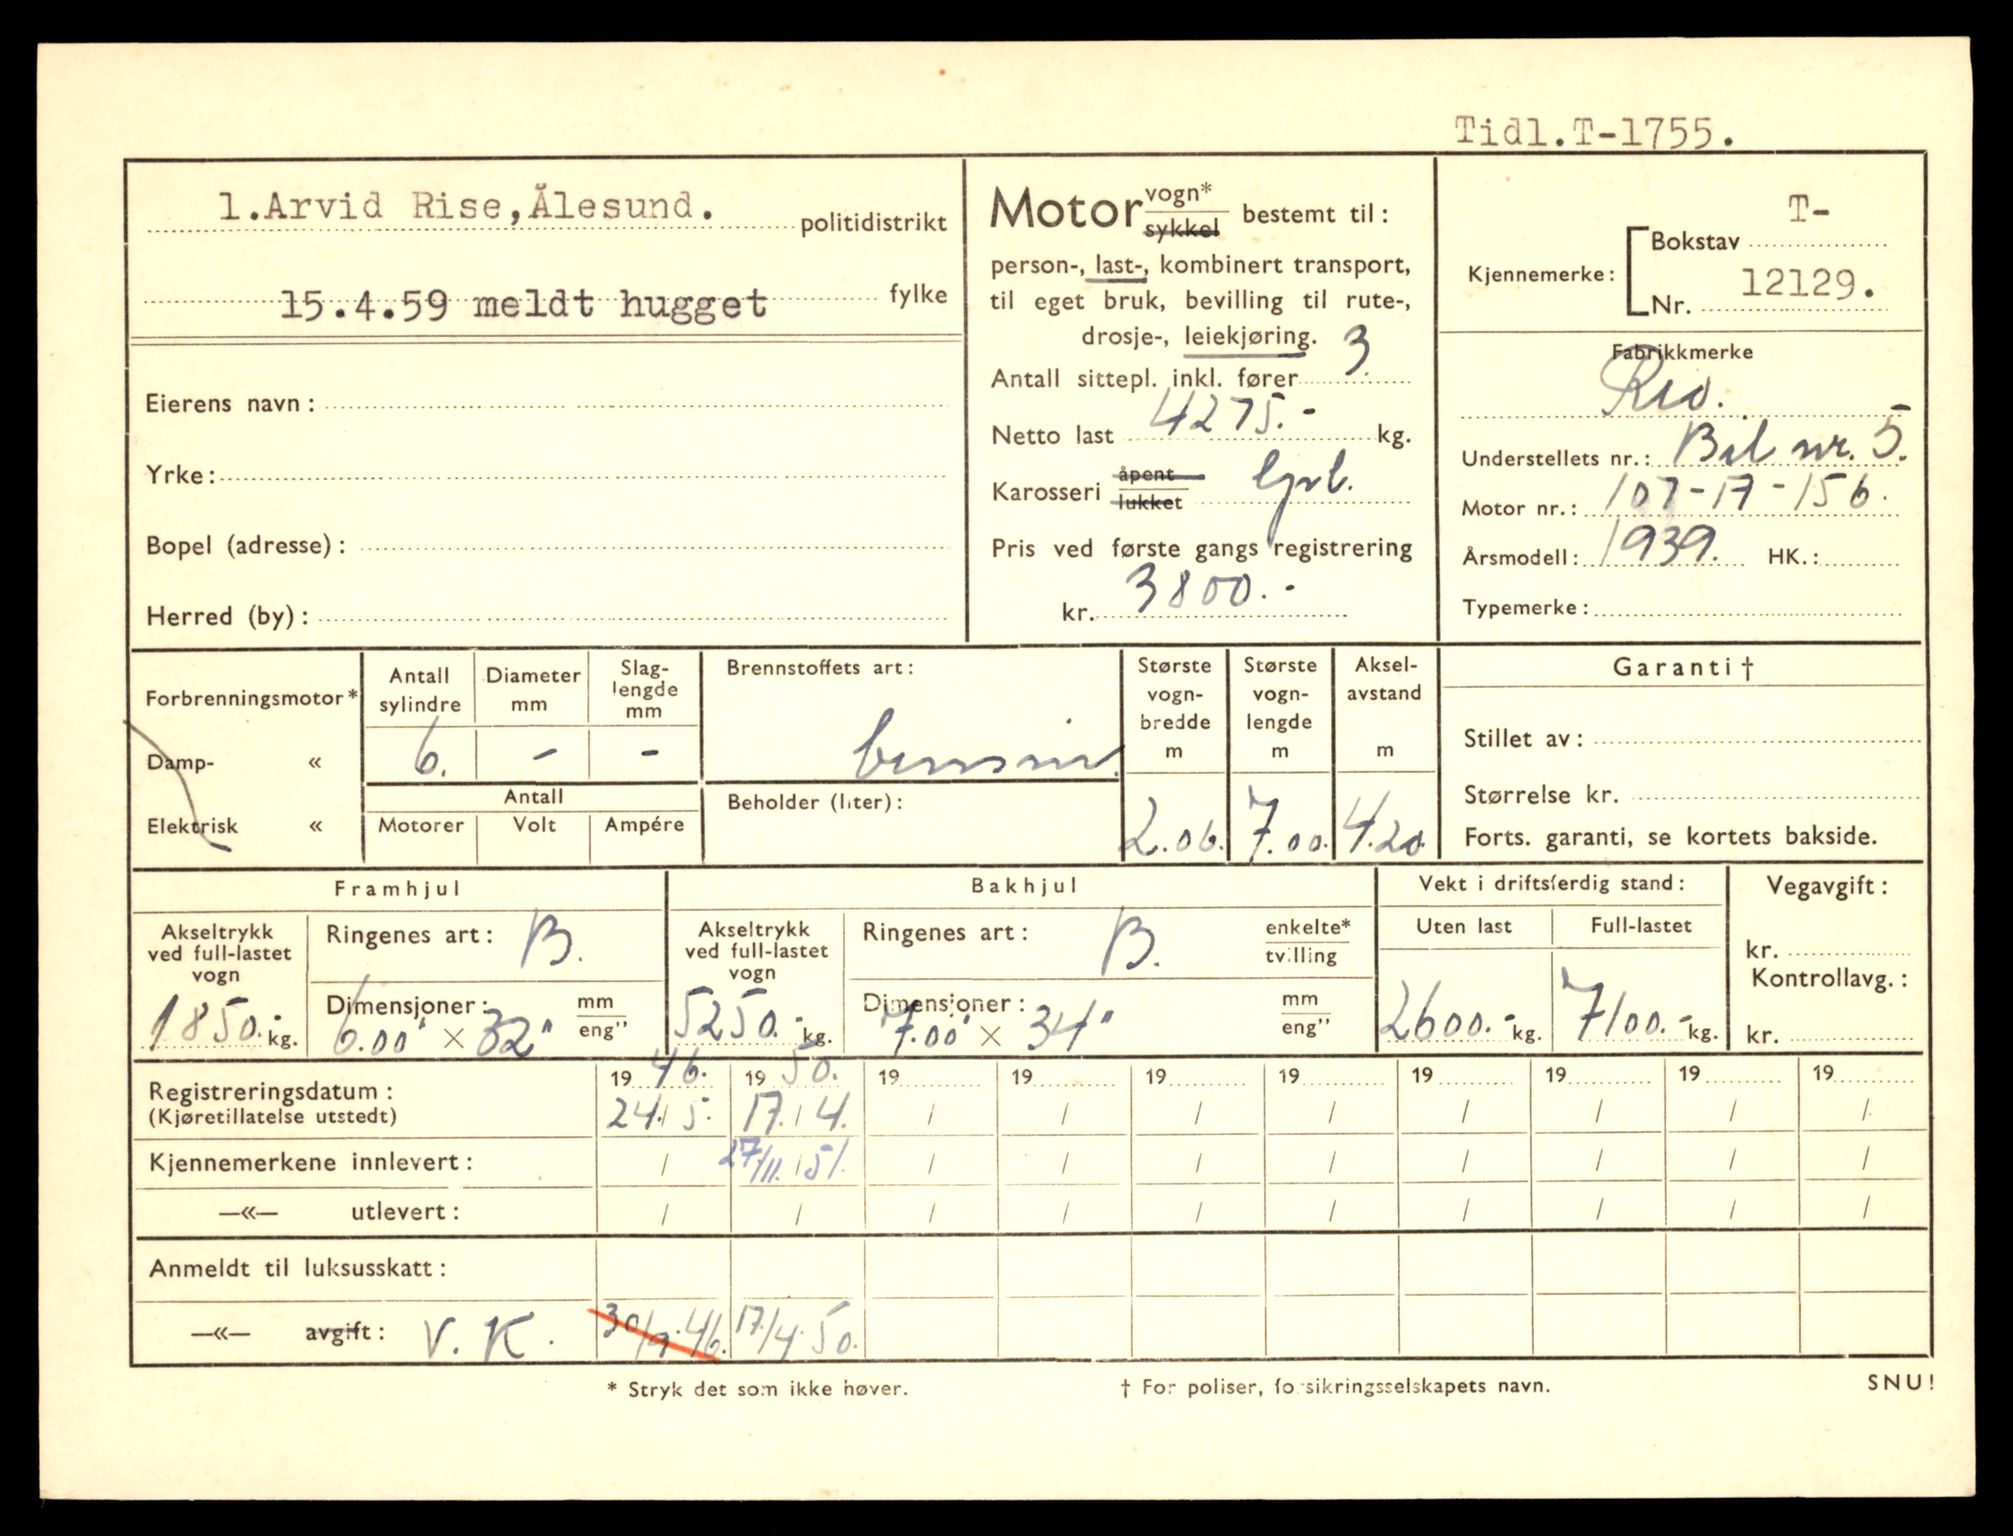 Tidl.T-1755.
1.Arvid Rise,Ålesund. politidistrikt
15.4.59 meldt hugget fylke
Eierens navn:
Yrke:
Bopel (adresse):
Herred (by):
Motor vogn* sykkel bestemt til:
person-, last-, kombinert transport,
til eget bruk, bevilling til rute-,
drosje-, leiekjøring.
Antall sittepl. inkl. fører 3
Netto last 4275.- kg.
Karosseri åpent lukket
Pris ved første gangs registrering
kr. 3800.-
Kjennemerke: Bokstav T-
Nr. 12129.
Fabrikkmerke
Reo.
Understellets nr.: Bil nr. 5.
Motor nr.: 107-17-156.
Årsmodell: 1939. HK.:
Typemerke:
Forbrenningsmotor*
Damp- «
Elektrisk «
Antall sylindre
6.
Diameter mm
-
Slag- lengde mm
-
Antall
Motorer Volt Ampére
Brennstoffets art:
bensin.
Beholder (liter):
Største vogn- bredde m
2.06.
Største vogn- lengde m
7.00.
Aksel- avstand m
4.20.
Garanti †
Stillet av:
Størrelse kr.
Forts. garanti, se kortets bakside.
Framhjul
Akseltrykk ved full-lastet vogn
1850.- kg.
Ringenes art: B.
Dimensjoner: mm eng”
6.00" × 32"
Bakhjul
Akseltrykk ved full-lastet vogn
5250.- kg.
Ringenes art: B. enkelte* tvilling
Dimensjoner: mm eng”
7.00" × 34"
Vekt i driftsferdig stand:
Uten last Full-lastet
2600.- kg. 7100.- kg.
Vegavgift:
kr.
Kontrollavg.:
kr.
19 46. 19 50. 19 19 19 19 19 19 19 19
Registreringsdatum: 24./5. 17./4. / / / / / / / /
(Kjøretillatelse utstedt)
Kjennemerkene innlevert: / 27/11. / 51. / / / / / / / /
—«— utlevert: / / / / / / / / / /
Anmeldt til luksusskatt:
—«— avgift: V. K. 30/9.46. 17./4.50.
* Stryk det som ikke høver. † For poliser, forsikringsselskapets navn. SNU!